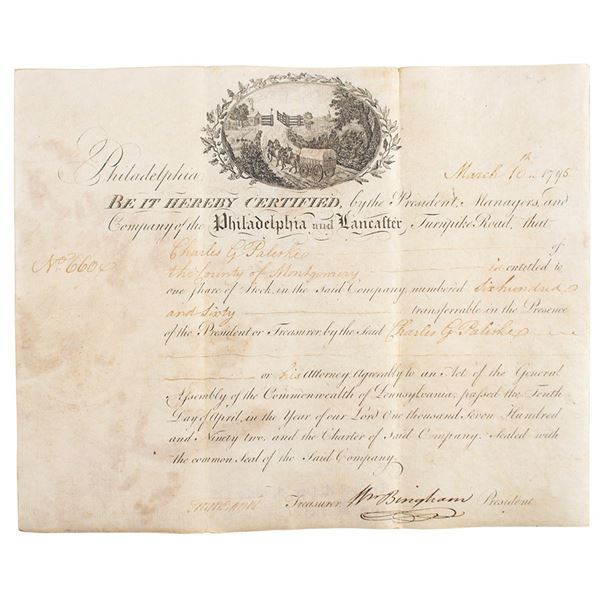 Philadelphia March 10th 1795
BE IT HEREBY CERTIFIED, by the President, Managers, and
Company of the Philadelphia and Lancaster Turnpike Road, that
Charles G Paleske of
No. 660 the County of Montgomery is entitled to
one Share of Stock, in the said Company, numbered Six hundred
and Sixty transferrable in the Presence
of the President or Treasurer, by the Said Charles G Paleske
or his Attorney Agreeably to an Act of the General
Assembly of the Commonwealth of Pennsylvania, passed the Tenth
Day of April, in the Year of our Lord One thousand Seven Hundred
and Ninety two, and the Charter of said Company. Sealed with
the common Seal of the Said Company.
Treasurer. Wm Bingham President